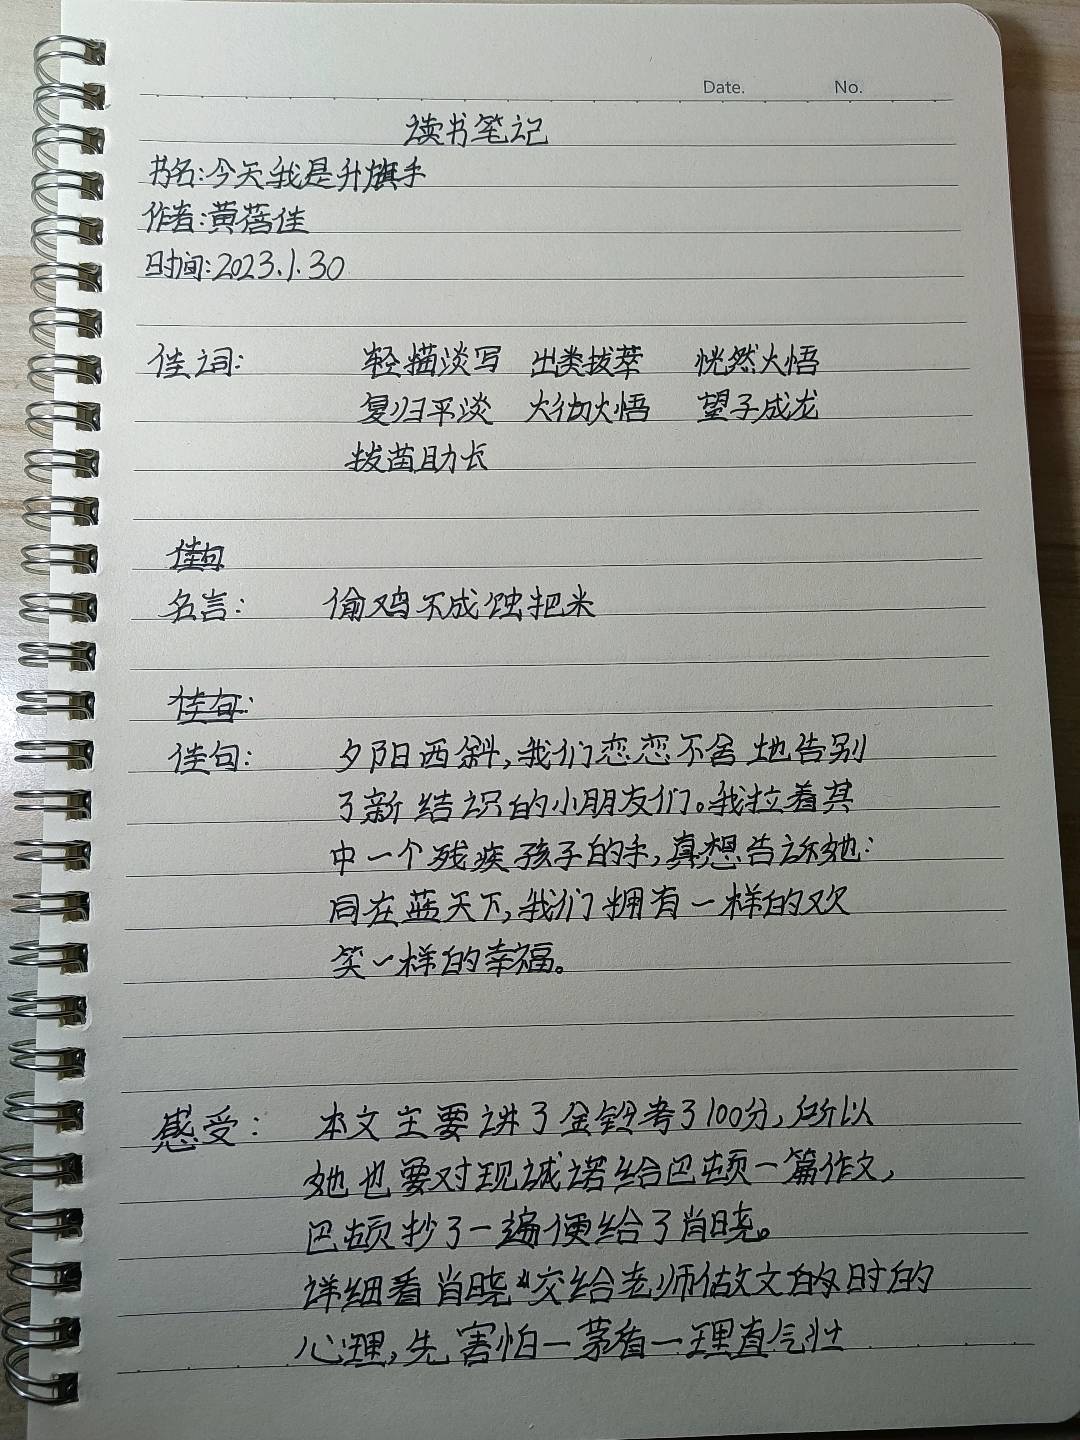 Date. No.
读书笔记
书名:今天我是升旗手
作者:黄蓓佳
时间:2023.1.30
佳词: 轻描淡写 出类拔萃 恍然大悟
复归平淡 大彻大悟 望子成龙
拔苗助长
佳句
名言: 偷鸡不成蚀把米
佳句:
佳句: 夕阳西斜,我们恋恋不舍地告别
了新结识的小朋友们。我拉着其
中一个残疾孩子的手,真想告诉她:
同在蓝天下,我们拥有一样的欢
笑一样的幸福。
感受: 本文主要讲了金铃考了100分,所以
她也要对现诚诺给巴顿一篇作文,
巴顿抄了一遍便给了肖晓。
详细看肖晓“交给老师做文的时的
心理,先害怕一茅盾一理直气壮